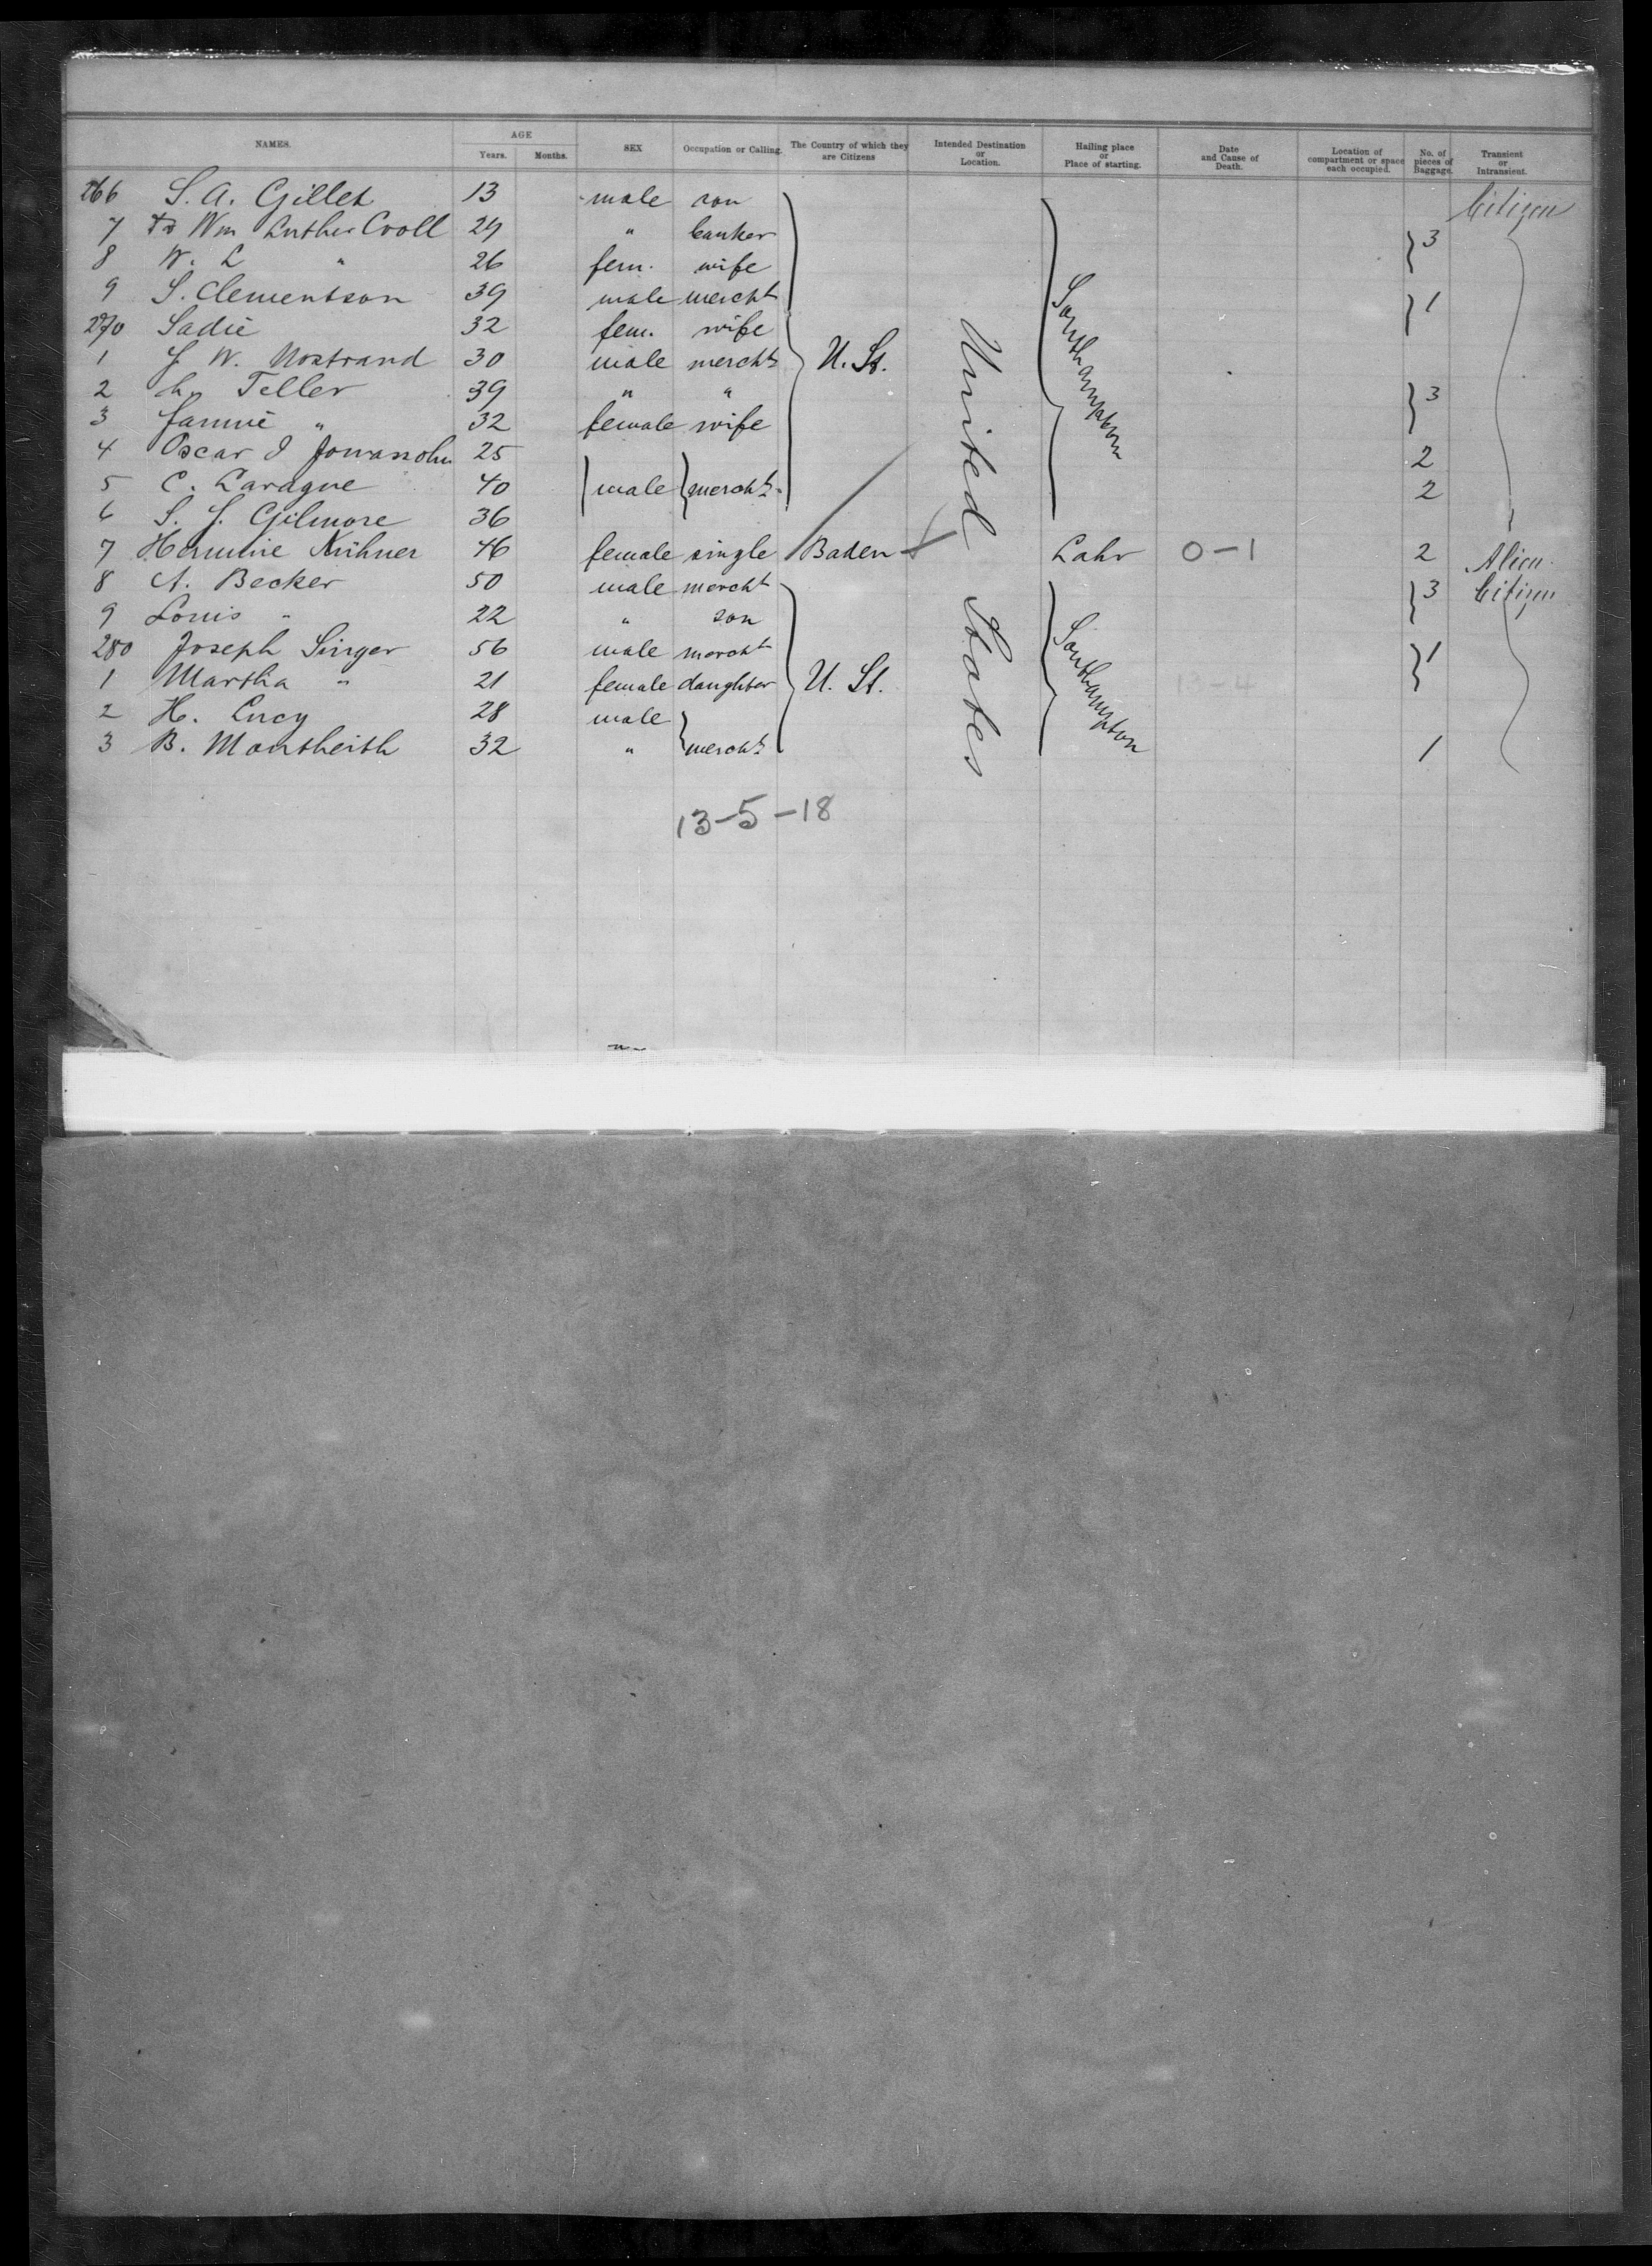 NAMES. AGE Years. Months. SEX Occupation or Calling. The Country of which they are Citizens Intended Destination or Location. Hailing place or Place of starting. Date and Cause of Death. Location of compartment or space each occupied. No. of pieces of Baggage. Transient or Intransient.
266 S. A. Gillet 13 male son Citizen
7 Wm Luther Croll 29 " banker 3
8 W. L " 26 fem. wife
9 S. Clementson 39 male mercht 1
270 Sadie 32 fem. wife
1 J W. Nostrand 30 male mercht U. St. United States Southampton
2 Teller 39 " " 3
3 Fannie " 32 female wife
4 Oscar J Jonassohn 25 2
5 C. Laragne 40 male mercht. 2
6 S. J. Gilmore 36
7 Hermine Kühner 46 female single Baden Lahr 0-1 2 Alien
8 A. Becker 50 male mercht 3 Citizen
9 Louis " 22 " son
280 Joseph Singer 56 male mercht 1
1 Martha " 21 female daughter U. St. Southampton 13-4
2 H. Lucy 28 male
3 B. Montheith 32 " mercht 1
13-5-18